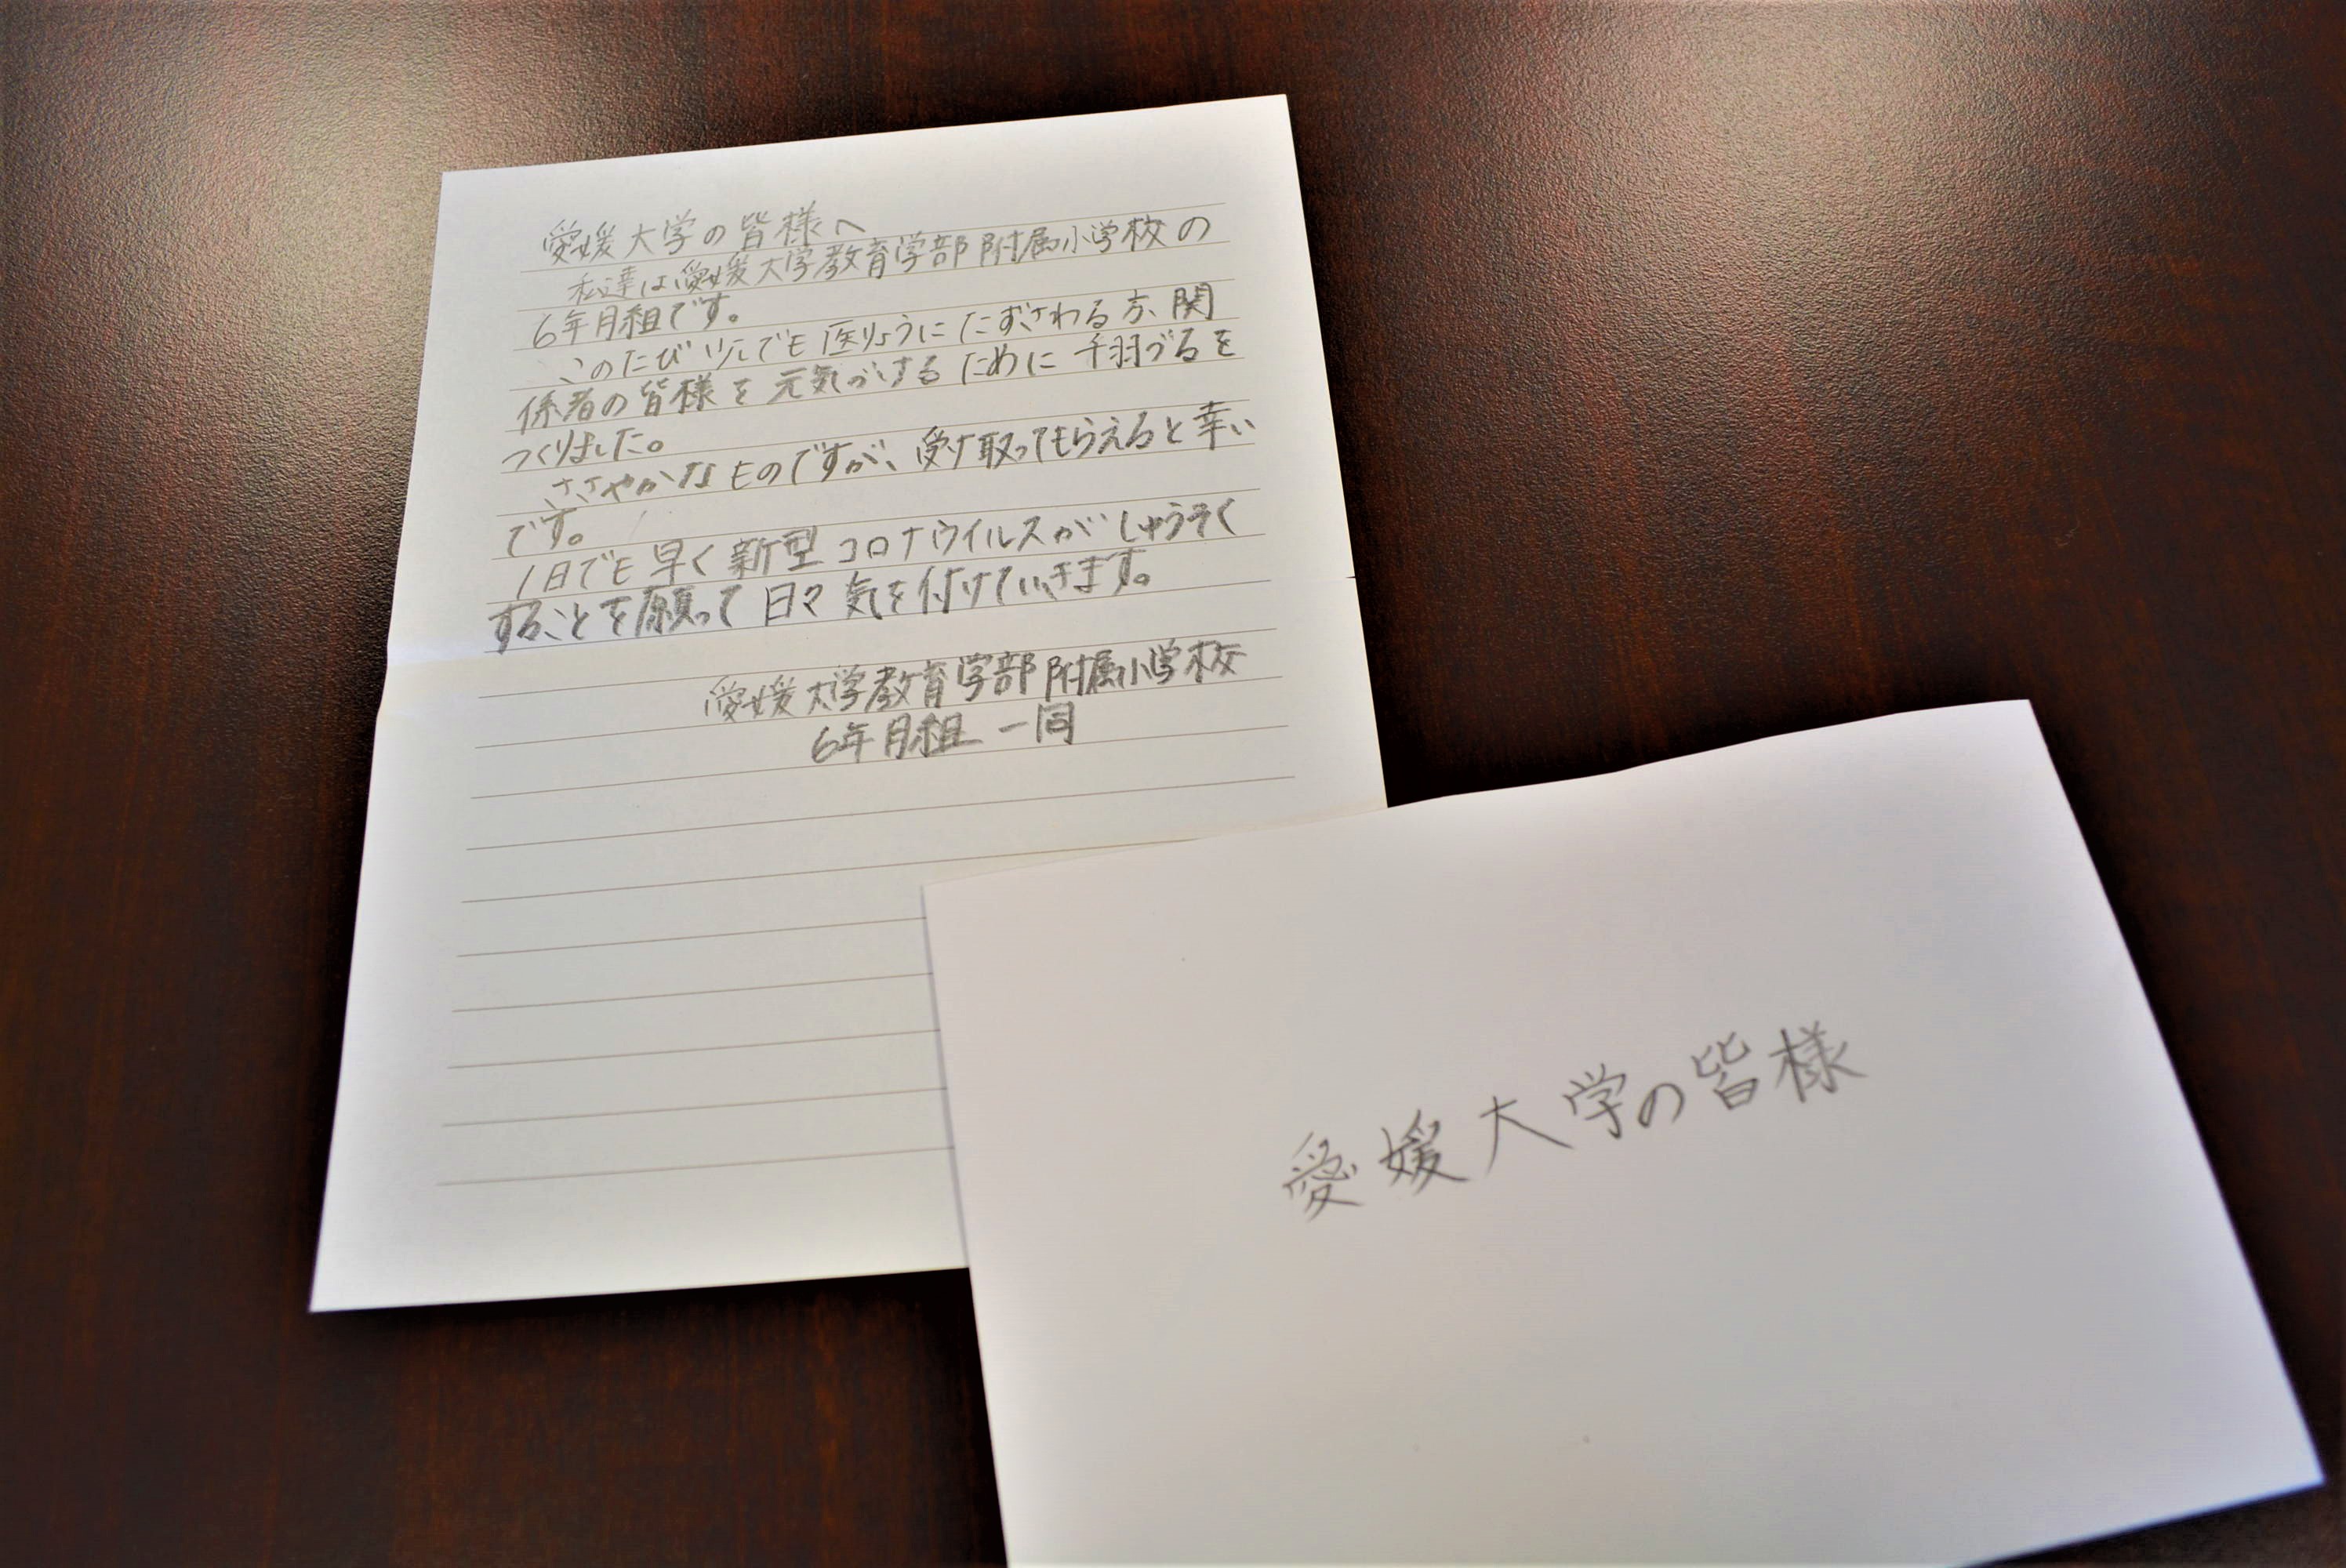 愛媛大学の皆様へ
私達は愛媛大学教育学部附属小学校の
6年月組です。
このたび少しでも医りょうにたずさわる方、関
係者の皆様を元気づけるために千羽づるを
つくりました。
ささやかなものですが、受け取ってもらえると幸い
です。
1日でも早く新型コロナウイルスがしゅうそく
することを願って日々気を付けていきます。
愛媛大学教育学部附属小学校
6年月組 一同
愛媛大学の皆様